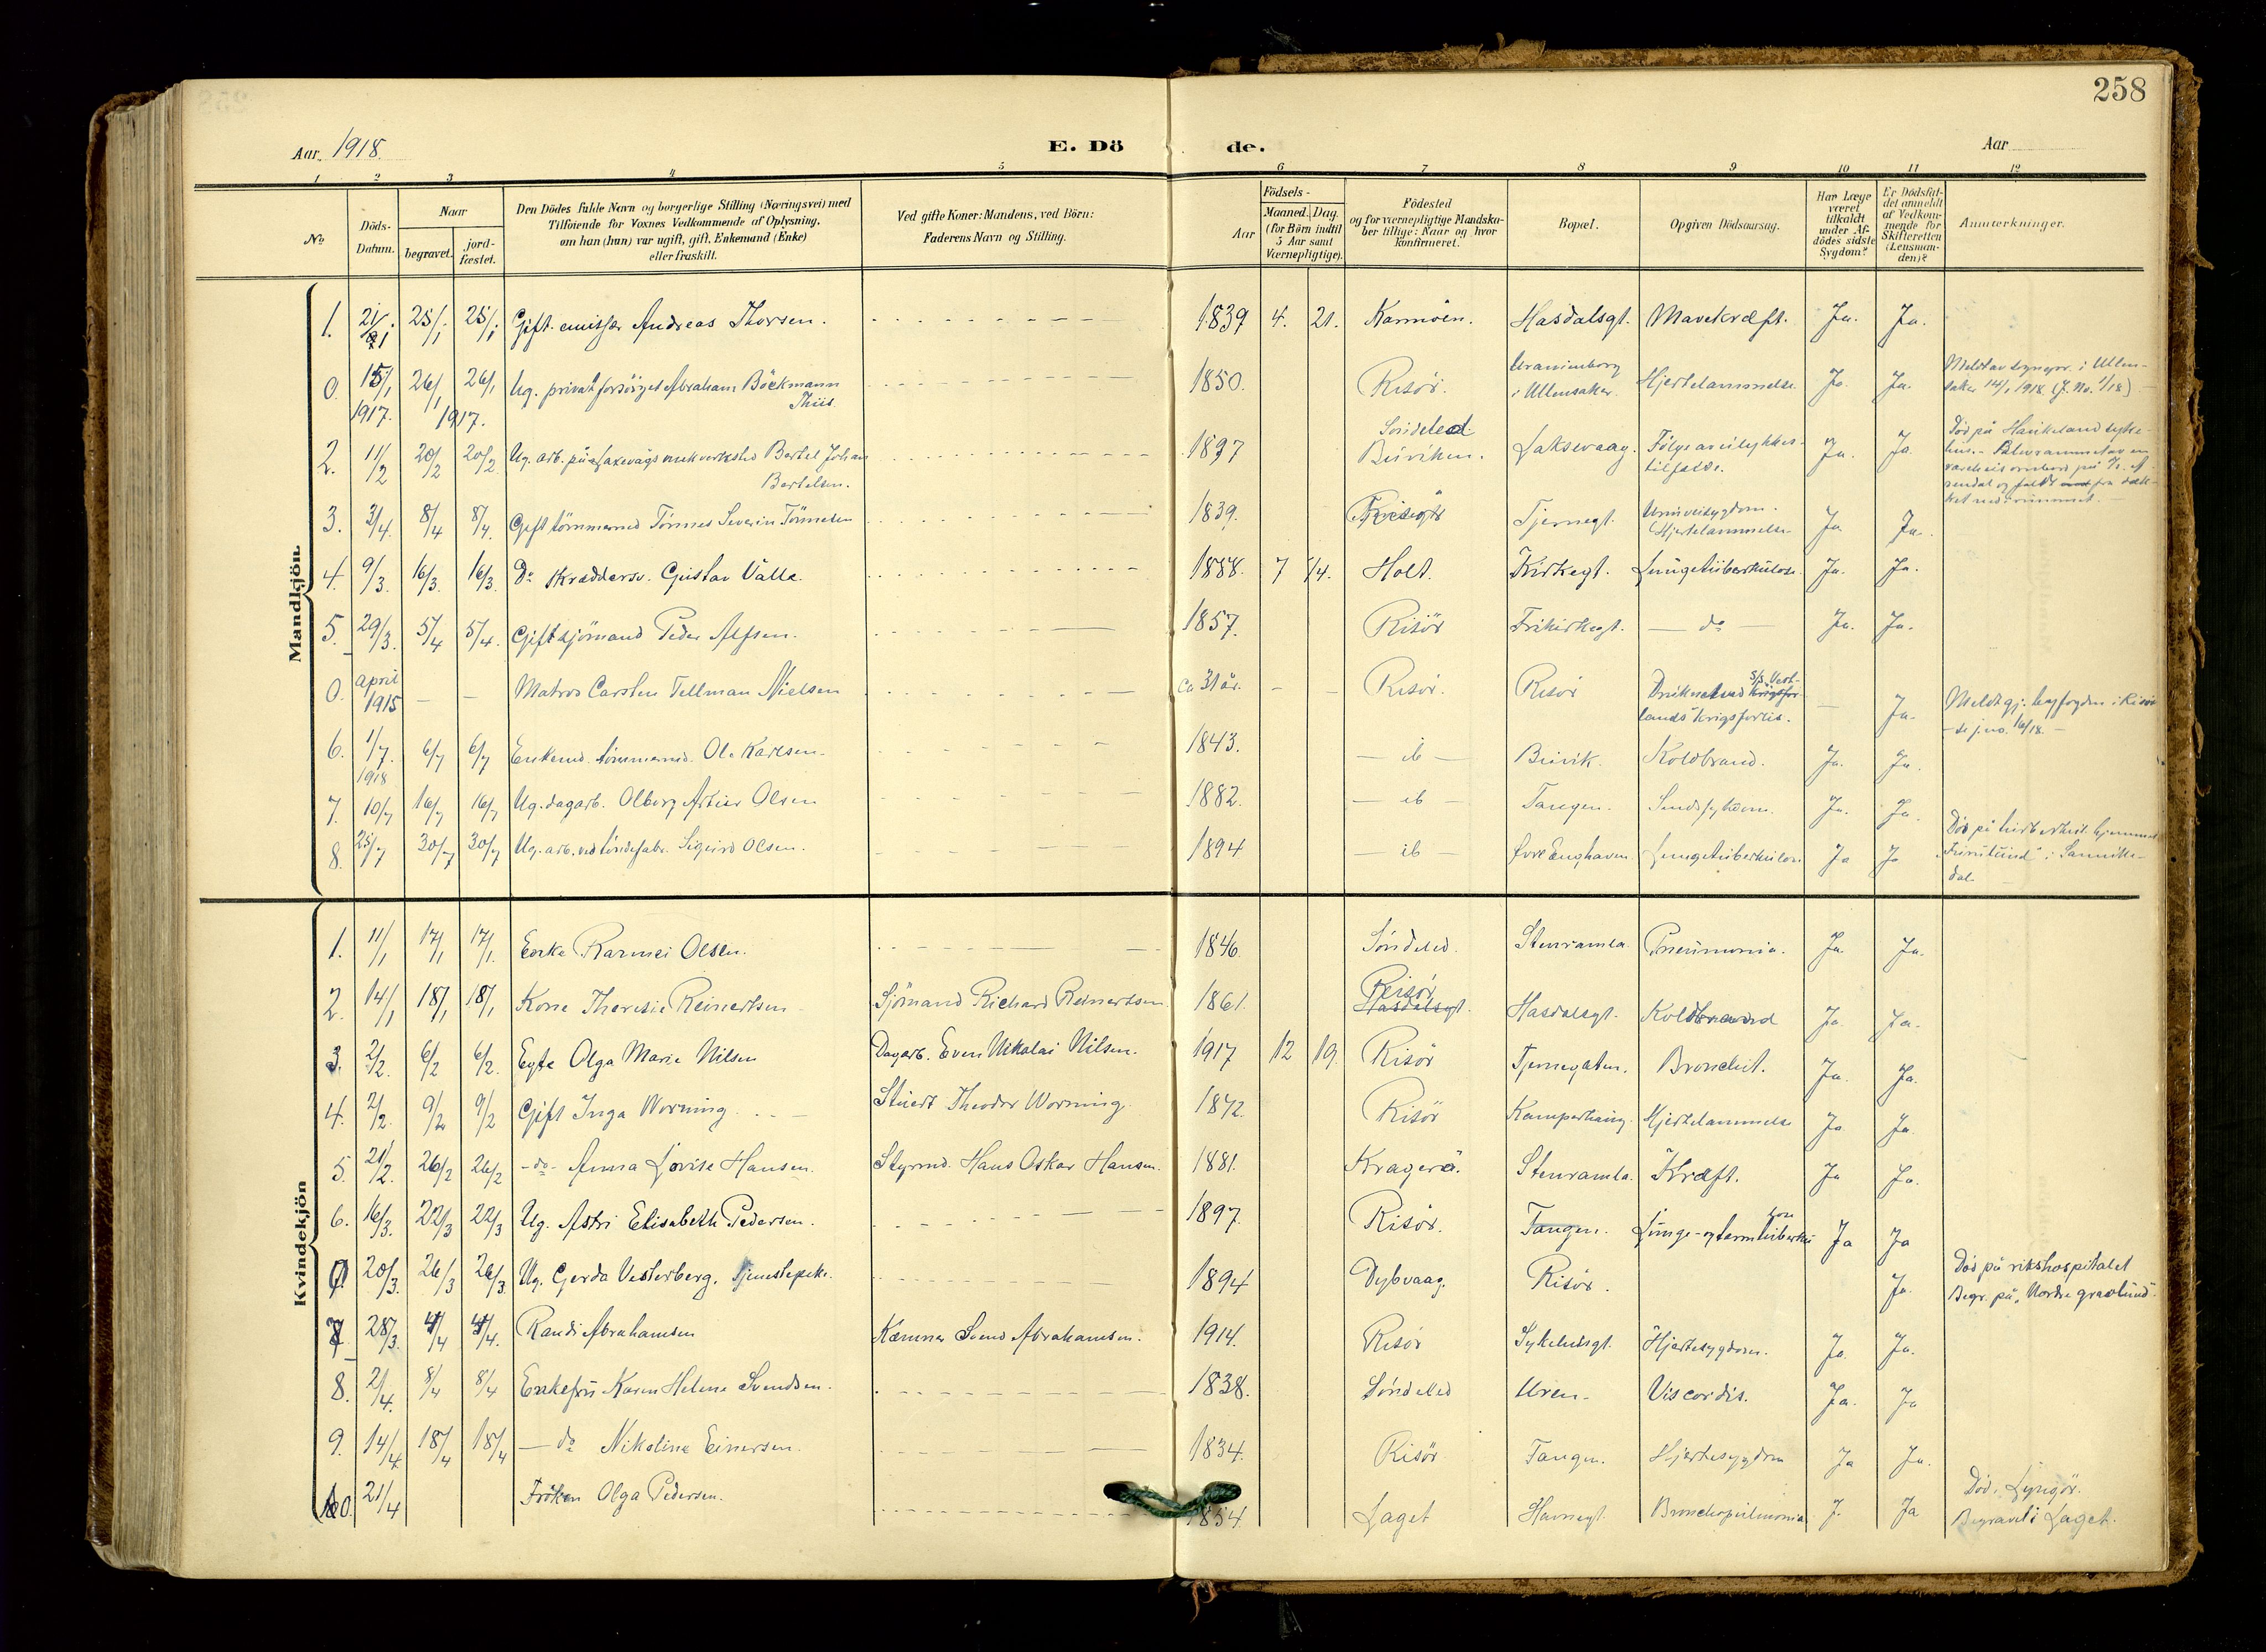 258
Aar. 1918.
E. Dö de.
Aar
1 2 3 4 5 6 7 8 9 10 11 12
No.
Döds-Datum.
Naar
begravet.
jord-fæstet.
Den Dödes fulde Navn og borgerlige Stilling (Næringsvei) med
Tilföiende for Voxnes Vedkommende af Oplysning,
om han (hun) var ugift, gift, Enkemand (Enke)
eller fraskilt.
Ved gifte Koner: Mandens, ved Börn:
Faderens Navn og Stilling.
Födsels-
Aar
Maaned. Dag.
(for Börn indtil
5 Aar samt
Værnepligtige).
Födested
og for værnepligtige Mandska-
ber tillige: Naar og hvor
konfirmeret.
Bopæl.
Opgiven Dödsaarsag.
Har Læge
været
tilkaldt
under Af-
dödes sidste
Sygdom?
Er Dödsfal-
det anmeldt
af Vedkom-
mende for
Skifteretten
(Lensman-
den)?
Anmærkninger.
Mandkjön
1. 21/1 25/1 25/1 Gift. emissær Andreas Thorsen. 1839 4. 21. Karmöen. Hasdalsgt. Mavekræft. Ja. Ja.
0. 15/1 1917. 26/1 26/1 1917. Ug. privat forsörget Abraham Böckmann
Thiis. 1850. Risör. Uranienborg
i Ullensaker. Hjertelammelse Ja. Ja. Meldt av sognepr. i Ullen-
saker 14/1 1918. (J. No. 1/18)
2. 11/2 20/2 20/2 Ug. arb. på Laxevågs mek verksted Bertel Johan
Bertelsen. 1897 Söndeled
Buviken. Laksevaag. Følge av ulykkes-
tilfælde. Ja. Ja. Död på Haukeland syke-
hus.
3. 3/4. 8/4 8/4. Gift tömmermd Tönnes Severin Tönnesen 1839. Tjernegt. Urinveisygdom.
Hjertelammelse Ja Ja.
4. 9/3. 16/3. 16/3. Do skræddersv. Gustav Valle. 1888. 7 14. Holt. Kirkegt. Lungetuberkulose. Ja. Ja.
5. 29/3. 5/4 5/4. Gift sjömand Peder Alfsen. 1857. Risör Frikirkegt. — do — Ja. Ja.
0. april 1915 — — Matros Carsten Tellman Nielsen ca 31 år. — — Risör. Risör Druknet ved S/S Vest-
lands krigsforlis. — Ja. Meldt gj. byfogden i Risör
6. 1/7. 1918 6/7 6/7 Enkemd. tömmermd. Ole Karlsen. 1843. — ib — Buvik. Koldbrand. Ja. Ja.
7. 10/7 16/7 16/7 Ug. dagarb. Olberg Artur Olsen 1882. — ib — Tangen. Sindssykdom. Ja. Ja.
8. 25/7 30/7 30/7 Ug. arb. ved töndefabr. Sigurd Olsen. 1894 — ib — Øvre Enghaven Lungetuberkulose Ja Ja Död på tuberkul. hjemmet
"Furulund" i Sannike-
dal
Kvindekjön
1. 11/1 17/1 17/1. Enke Olsen. 1846 Söndeled. Stenramla. Pneumonia. Ja. Ja.
2. 14/1 18/1 18/1 Kone Theresie Reinertsen Sjömand Richard Reinertsen 1861. Risör
Hasdalsgt. Hasdalsgt. Koldbrand Ja Ja.
3. 2/2. 6/2 6/2. Egte Olga Marie Nilsen Dagarb. Even Nikolai Nilsen. 1917 12 19. Risör Tjernegaten. Bronchit. Ja. Ja.
4. 2/2. 9/2 9/2 Gift Inga Worning Stuert Theodor Worning. 1872. Risör Kamperhaug. Hjertelammelse Ja Ja.
5. 21/2. 26/2 26/2 -do- Anna Lovise Hansen. Styrmd. Hans Oskar Hansen. 1881. Kragerö. Stenramla. Kræft. Ja Ja.
6. 16/3. 22/3 22/3 Ug. Astri Elisabeth Pedersen. 1897. Risör. Tangen. Lunge- og tarmtuberku
lose Ja Ja
0 20/3. 26/3 26/3 Ug. Gerda Vesterberg, tjenestepike. 1894 Dybvaag. Risör. Ja. Död på rikshospitalet
Begr. på "Nordre gravlund"
7 28/3. 4/4 4/4. Randi Abrahamsen Kæmner Svend Abrahamsen. 1914. Risör Sykehusgt. Hjertesygdom. Ja. Ja.
8. 2/4. 8/4 8/4 Enkefru Karen Helene Svendsen. 1838. Söndeled Uren Vis cordis. Ja. Ja
9. 14/4 18/4 18/4 — do Nikoline Einersen. 1834. Risör Tangen. Hjertesygdom Ja Ja.
0. 21/4 Fröken Olga Pedersen. 1854. Laget Havnegt. Bronchopneumonia J. Ja Död i Lyngör.
Begravet i Laget.